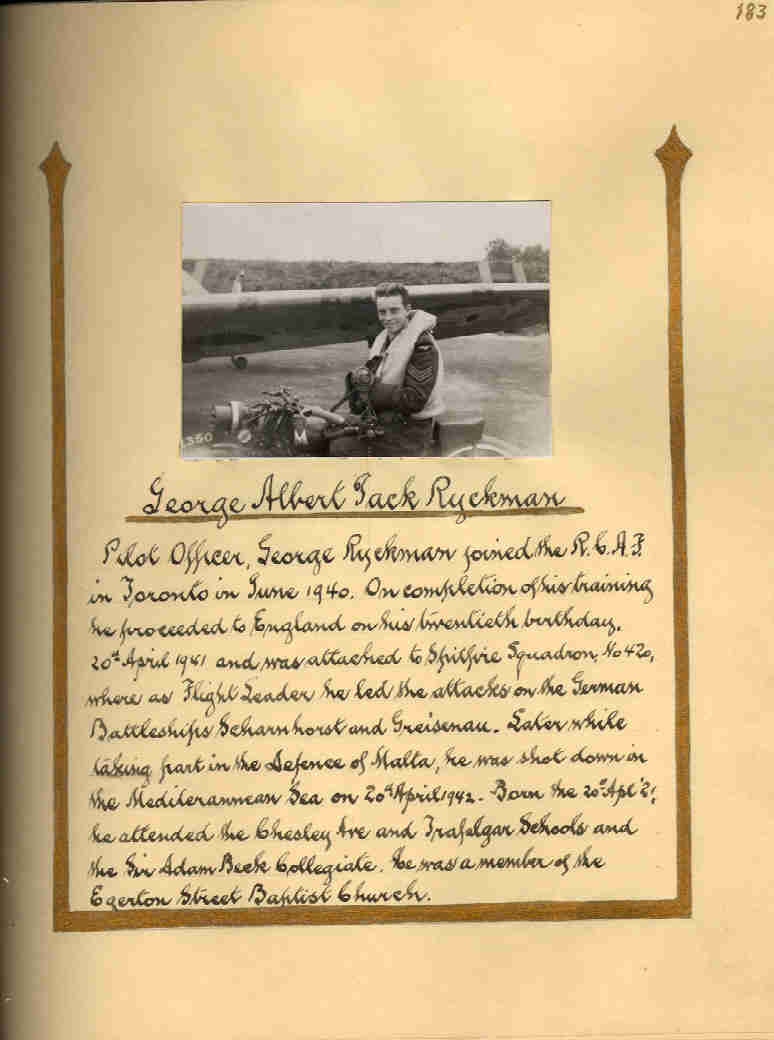 183
1350
George Albert Jack Ryckman
Pilot Officer, George Ryckman joined the R.C.A.F.
in Toronto in June 1940. On completion of his training
he proceeded to England on his twentieth birthday.
20th April 1941 and was attached to Spitfire Squadron, No 420,
where as Flight Leader he led the attacks on the German
Battleships Scharnhorst and Greisenau. Later while
taking part in the Defence of Malta, he was shot down in
the Mediterannean Sea on 20th April 1942. Born the 20th Apl '21,
he attended the Chesley Ave and Trafalgar Schools and
the Sir Adam Beck Collegiate. he was a member of the
Egerton Street Baptist Church.